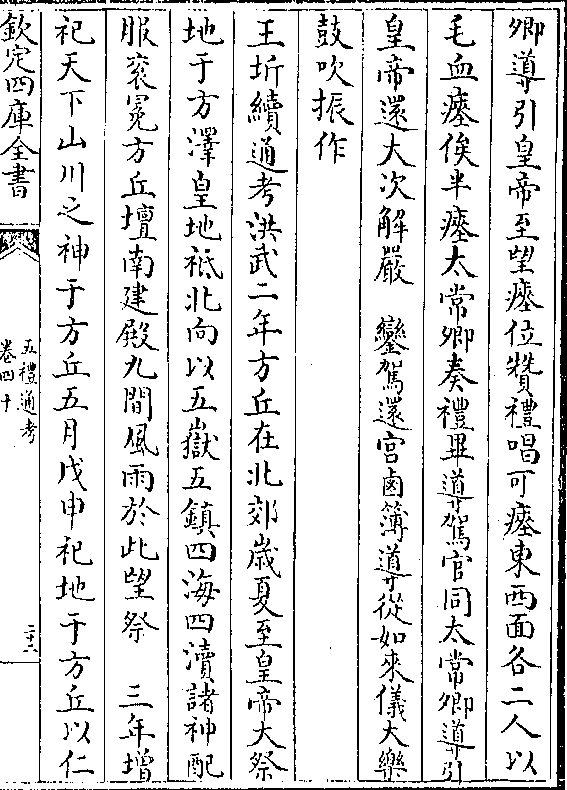 卿導引皇帝至望瘞位贊禮唱可瘞東西面各二人以
毛血瘞俟半瘞太常卿奏禮畢導駕官同太常卿導引
皇帝還大次解嚴　鑾駕還宮鹵簿導從如來儀大樂
鼓吹振作
王圻續通考洪武二年方丘在北郊歲夏至皇帝大祭
地于方澤皇地祇北向以五嶽五鎮四海四瀆諸神配
服衮冕方丘壇南建殿九間風雨於此望祭　三年增
祀天下山川之神于方丘五月戊申祀地于方丘以仁
欽定四庫全書
五禮通考
卷四十
二十三